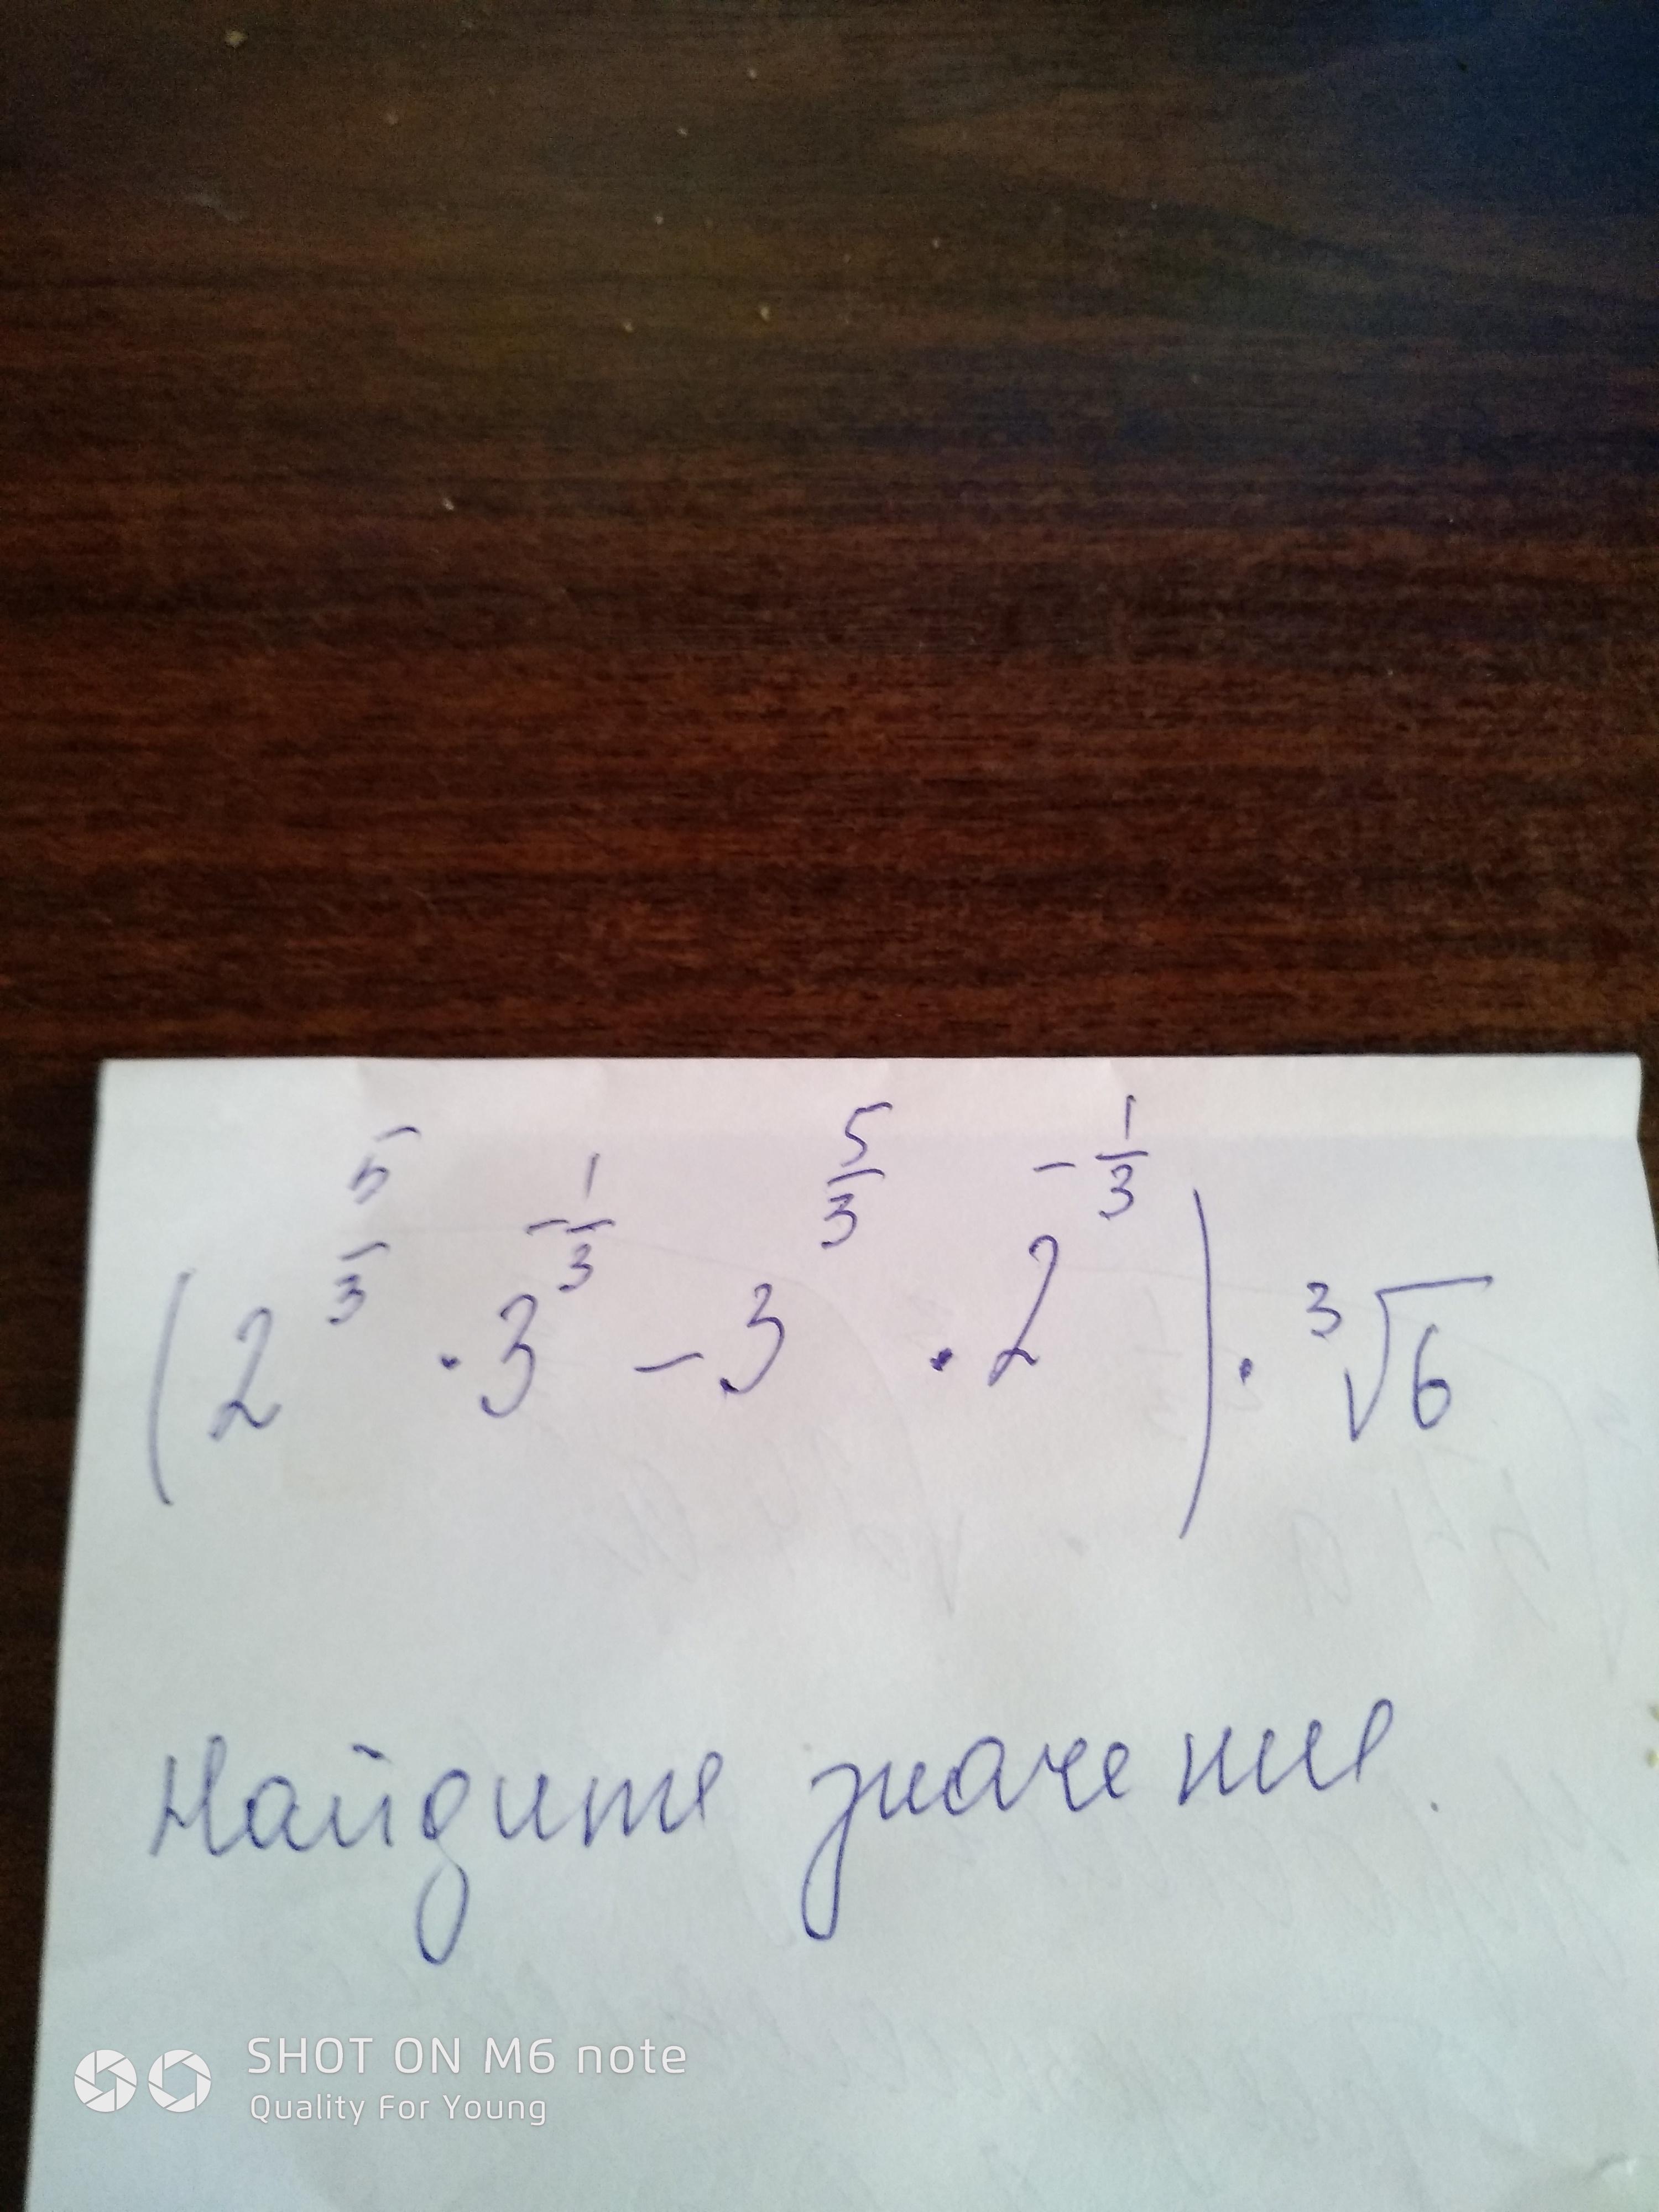 (2^{5/3} · 3^{-1/3} - 3^{5/3} · 2^{-1/3}) · ∛6
Найдите значение
SHOT ON M6 note
Quality For Young